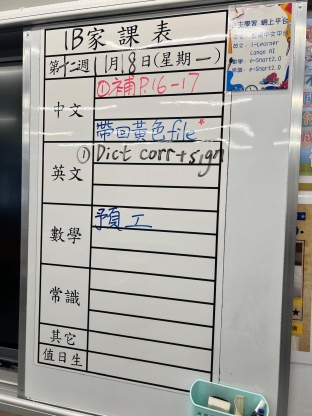 1B家課表
第十二週 11月18日(星期一)
中文 ①補P.16-17
帶回黃色file*
英文 ① Dict corr+sign
數學 預工
常識
其它
值日生
主學習 網上平台
i-Learner
e-Smart2.0
e-Smart2.0